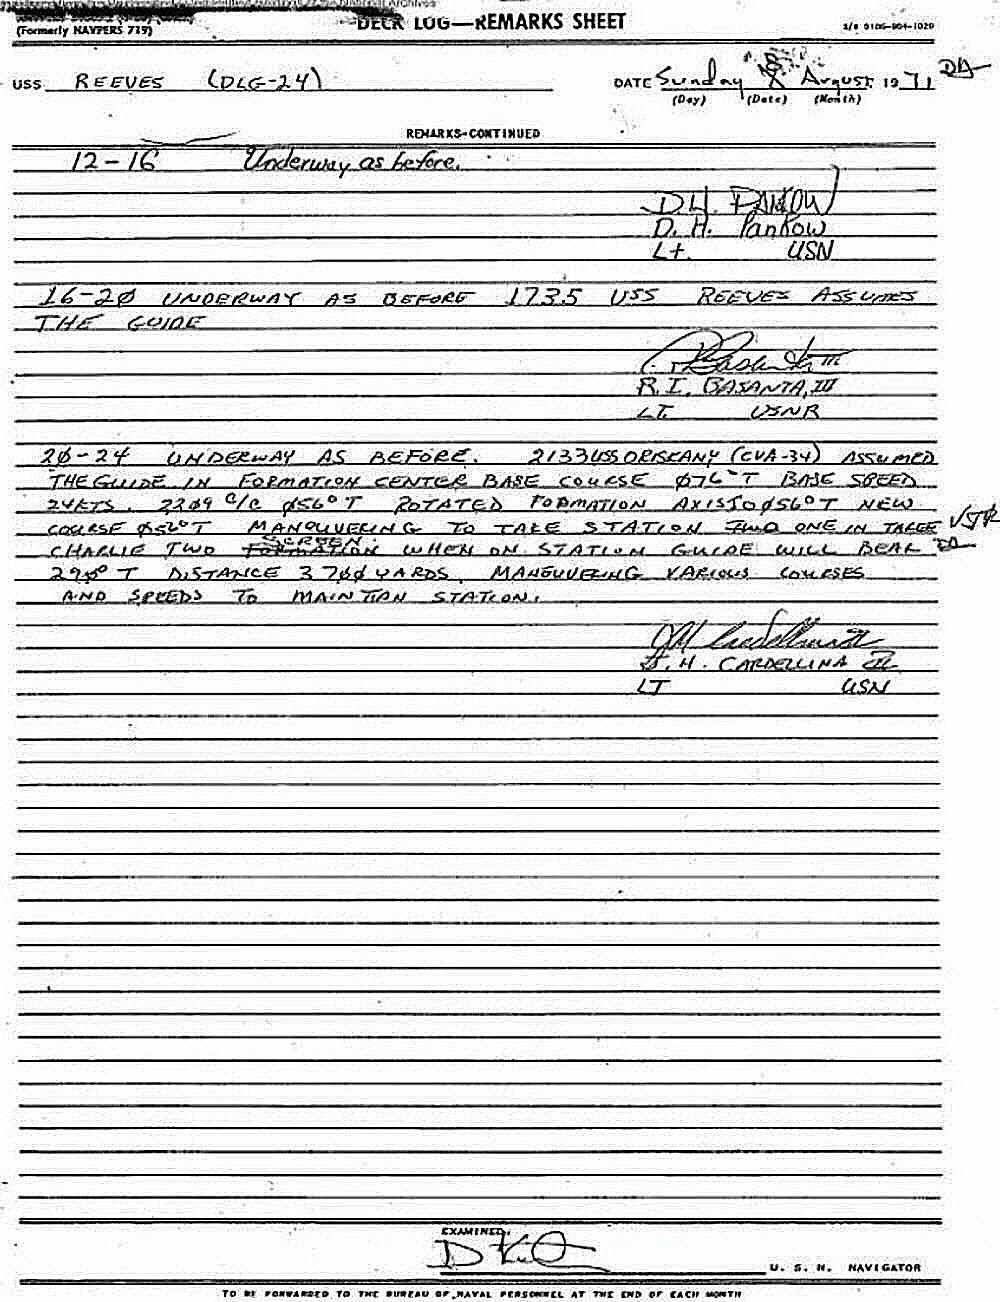 (Formerly NAVPERS 719)
DECK LOG—REMARKS SHEET
S/N 0106-904-1020
USS REEVES (DLG-24)
DATE Sunday 8 August 19 71
(Day) (Date) (Month)
REMARKS-CONTINUED
12-16 Underway as before.
D.H. PANKOW
D. H. Pankow
Lt. USN
16-2Ø UNDERWAY AS BEFORE 1735 USS REEVES ASSUMES
THE GUIDE
R. I. BASANTA, III
LT. USNR
2Ø-24 UNDERWAY AS BEFORE. 2133 USS ORISKANY (CVA-34) ASSUMED
THE GUIDE IN FORMATION CENTER BASE COURSE Ø76°T BASE SPEED
24KTS. 22Ø9 C/C Ø56°T ROTATED FORMATION AXIS TO Ø56°T NEW
COURSE Ø56°T MANOUVERING TO TAKE STATION TWO ONE IN THREE
SCREEN.
CHARLIE TWO FORMATION WHEN ON STATION GUIDE WILL BEAR
29Ø° T DISTANCE 37ØØ YARDS. MANEUVERING VARIOUS COURSES
AND SPEEDS TO MAINTIAN STATION.
J. H. CARDELLINA II
LT USN
EXAMINED:
U. S. N. NAVIGATOR
TO BE FORWARDED TO THE BUREAU OF NAVAL PERSONNEL AT THE END OF EACH MONTH